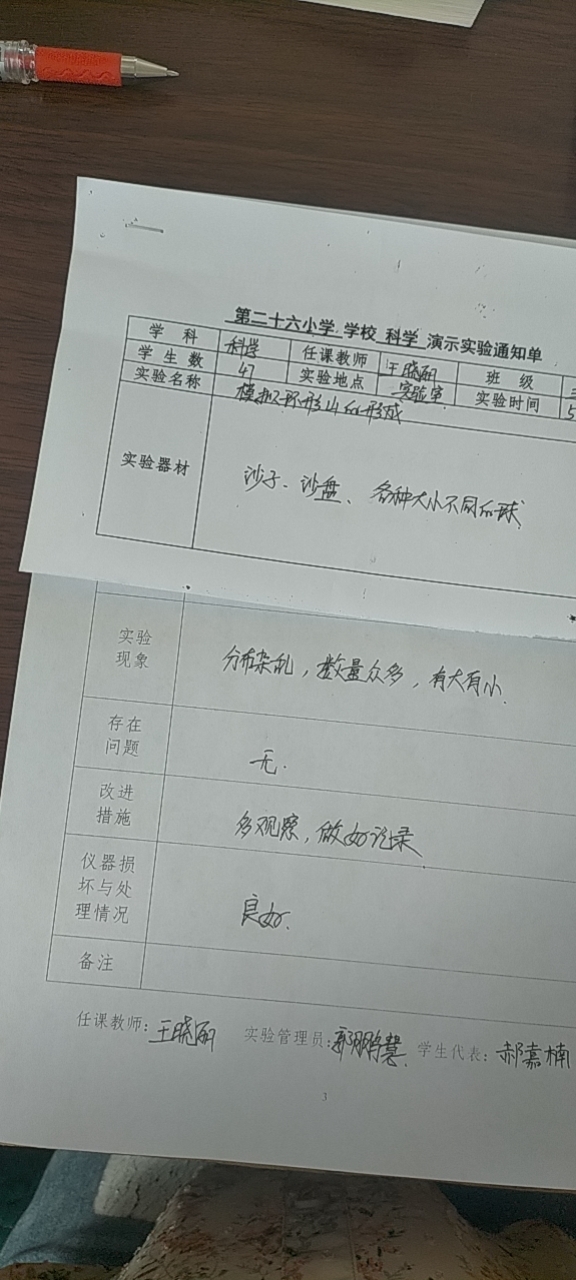 第二十六小学 学校 科学 演示实验通知单
学 科 科学 任课教师 王晓丽 班 级
学 生 数 47 实验地点 实验室 实验时间 5
实验名称 模拟环形山的形成
实验器材 沙子、沙盘、各种大小不同的球
实验
现象 分布杂乱，数量众多，有大有小.
存在
问题 无.
改进
措施 多观察，做好记录
仪器损
坏与处
理情况 良好.
备注
任课教师：王晓丽 实验管理员：郭鹏慧. 学生代表：郝嘉楠
3